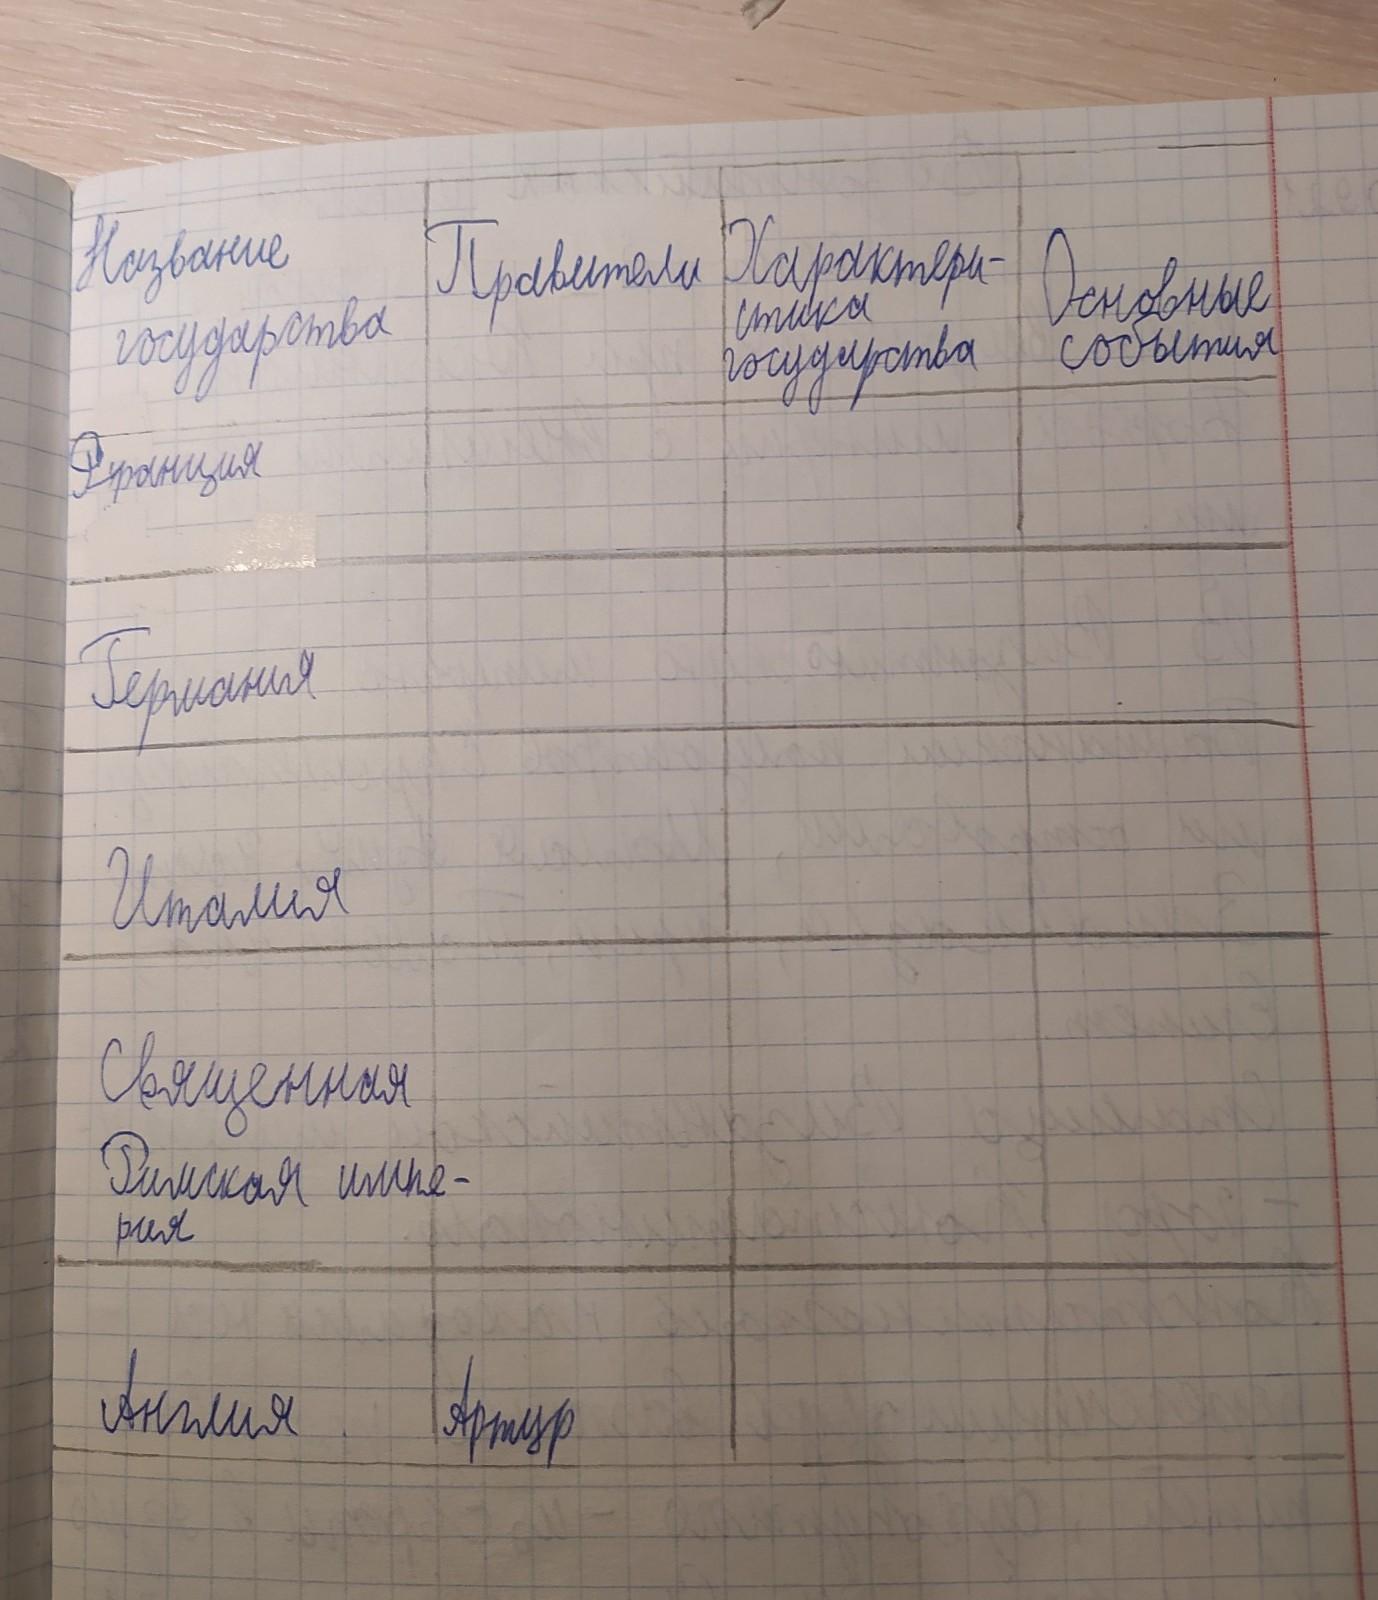 Название
государства
Правители
Характери-
стика
государства
Основные
события
Франция
Германия
Италия
Священная
Римская импе-
рия
Англия
Артур